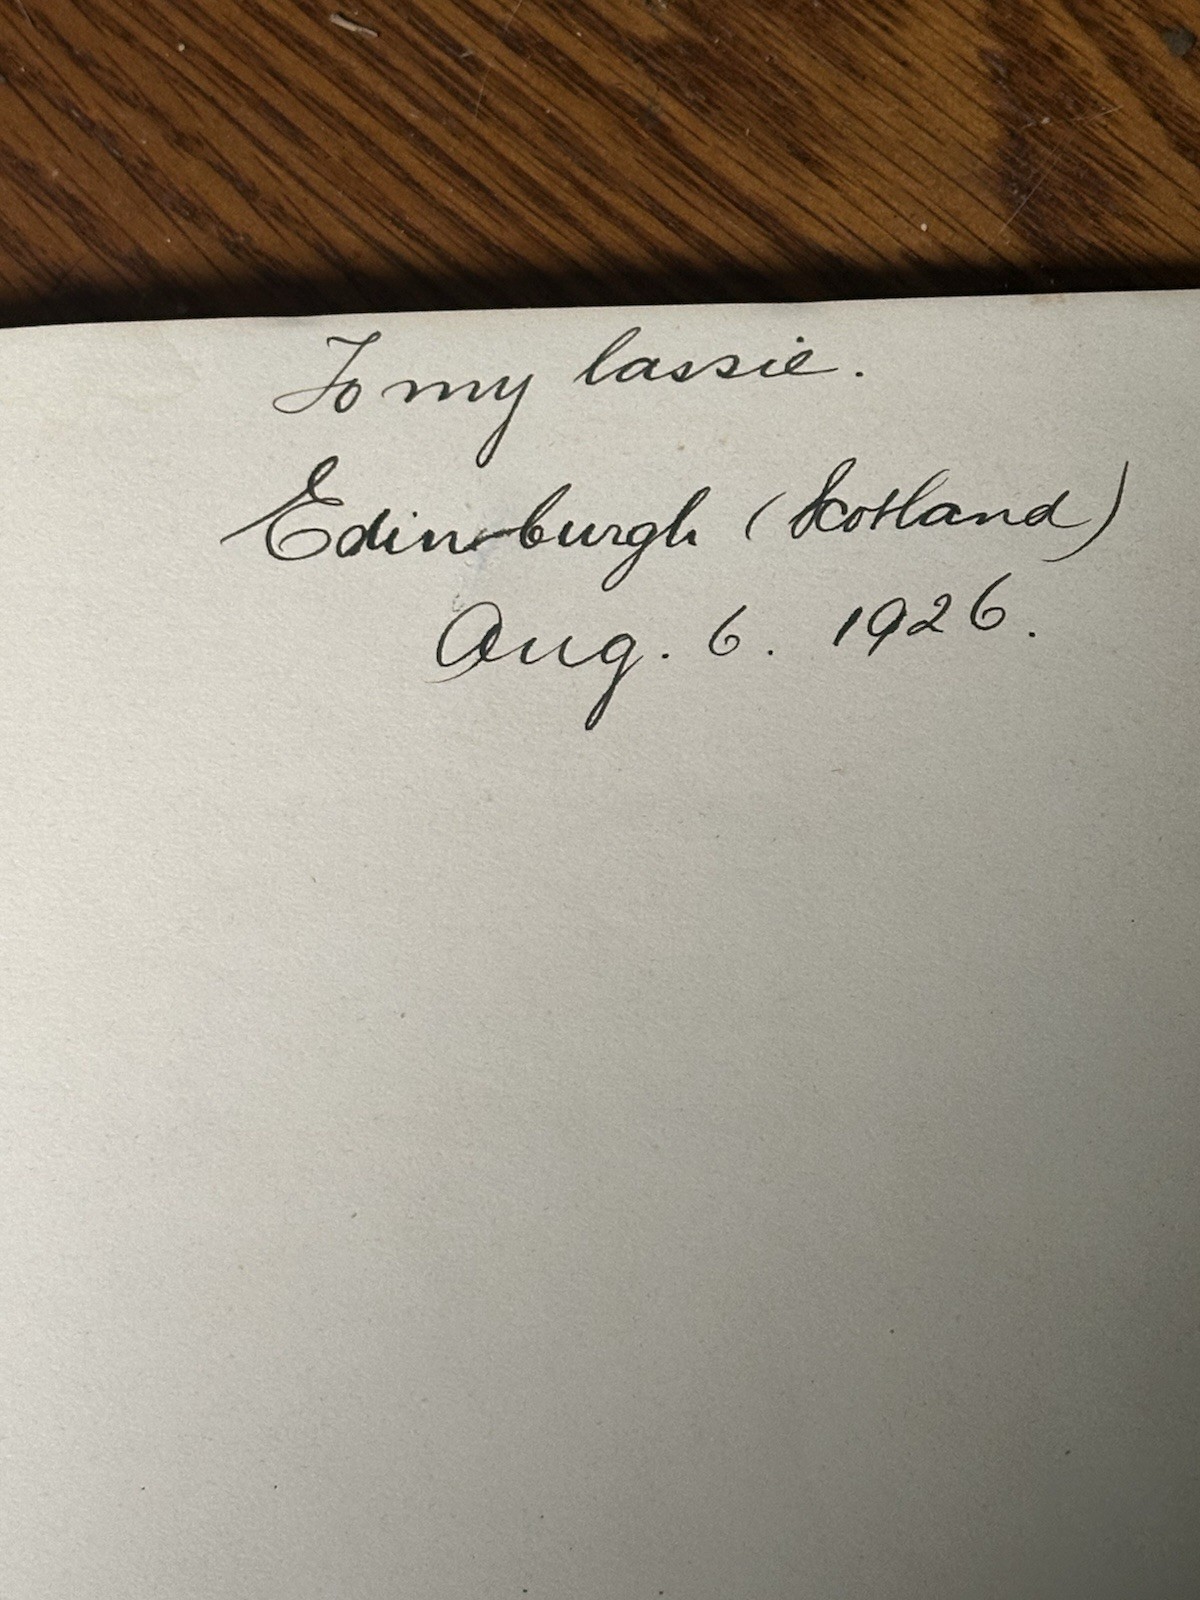 To my lassie.
Edinburgh (Scotland)
Aug. 6. 1926.